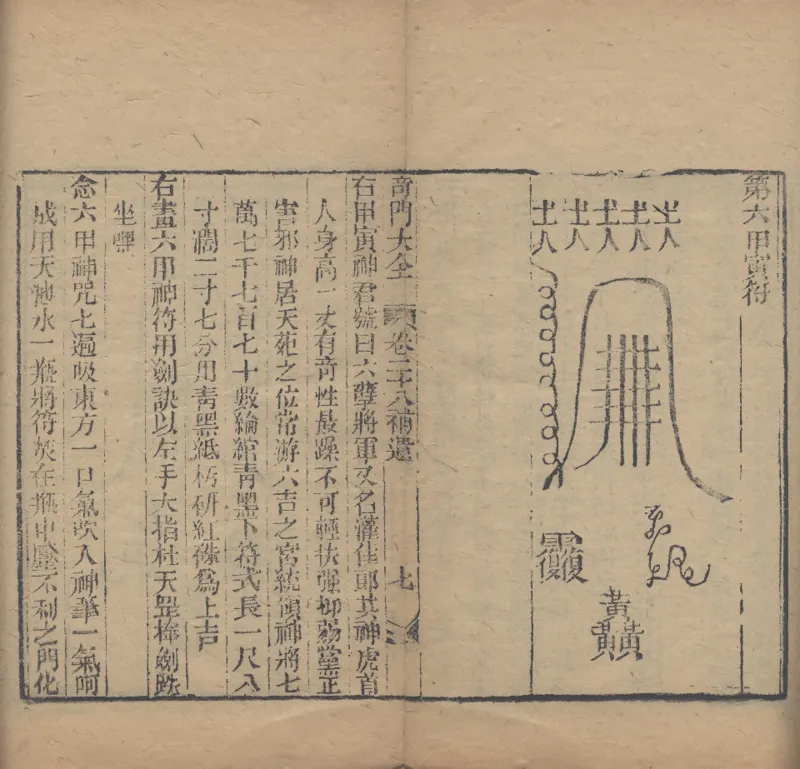 第六甲寅符
奇門大全 卷二十八補遺 七
右甲寅神君號曰六孽將軍又名灌佳郎其神虎首
人身高一丈有奇性最躁不可輕扶强抑弱黨正
害邪神居天苑之位常游六吉之宮統領神將七
萬七千七百七十數綸綰青墨卜符式長一尺八
寸濶二寸七分用青黑紙朽研紅硃為上吉
右畫六甲神符用劍訣以左手大指柱天罡捧劍趺
坐嘿
念六甲神咒七遍吸東方一口氣吹入神筆一氣呵
成用天池水一瓶將符焚在瓶中塵不利之門化